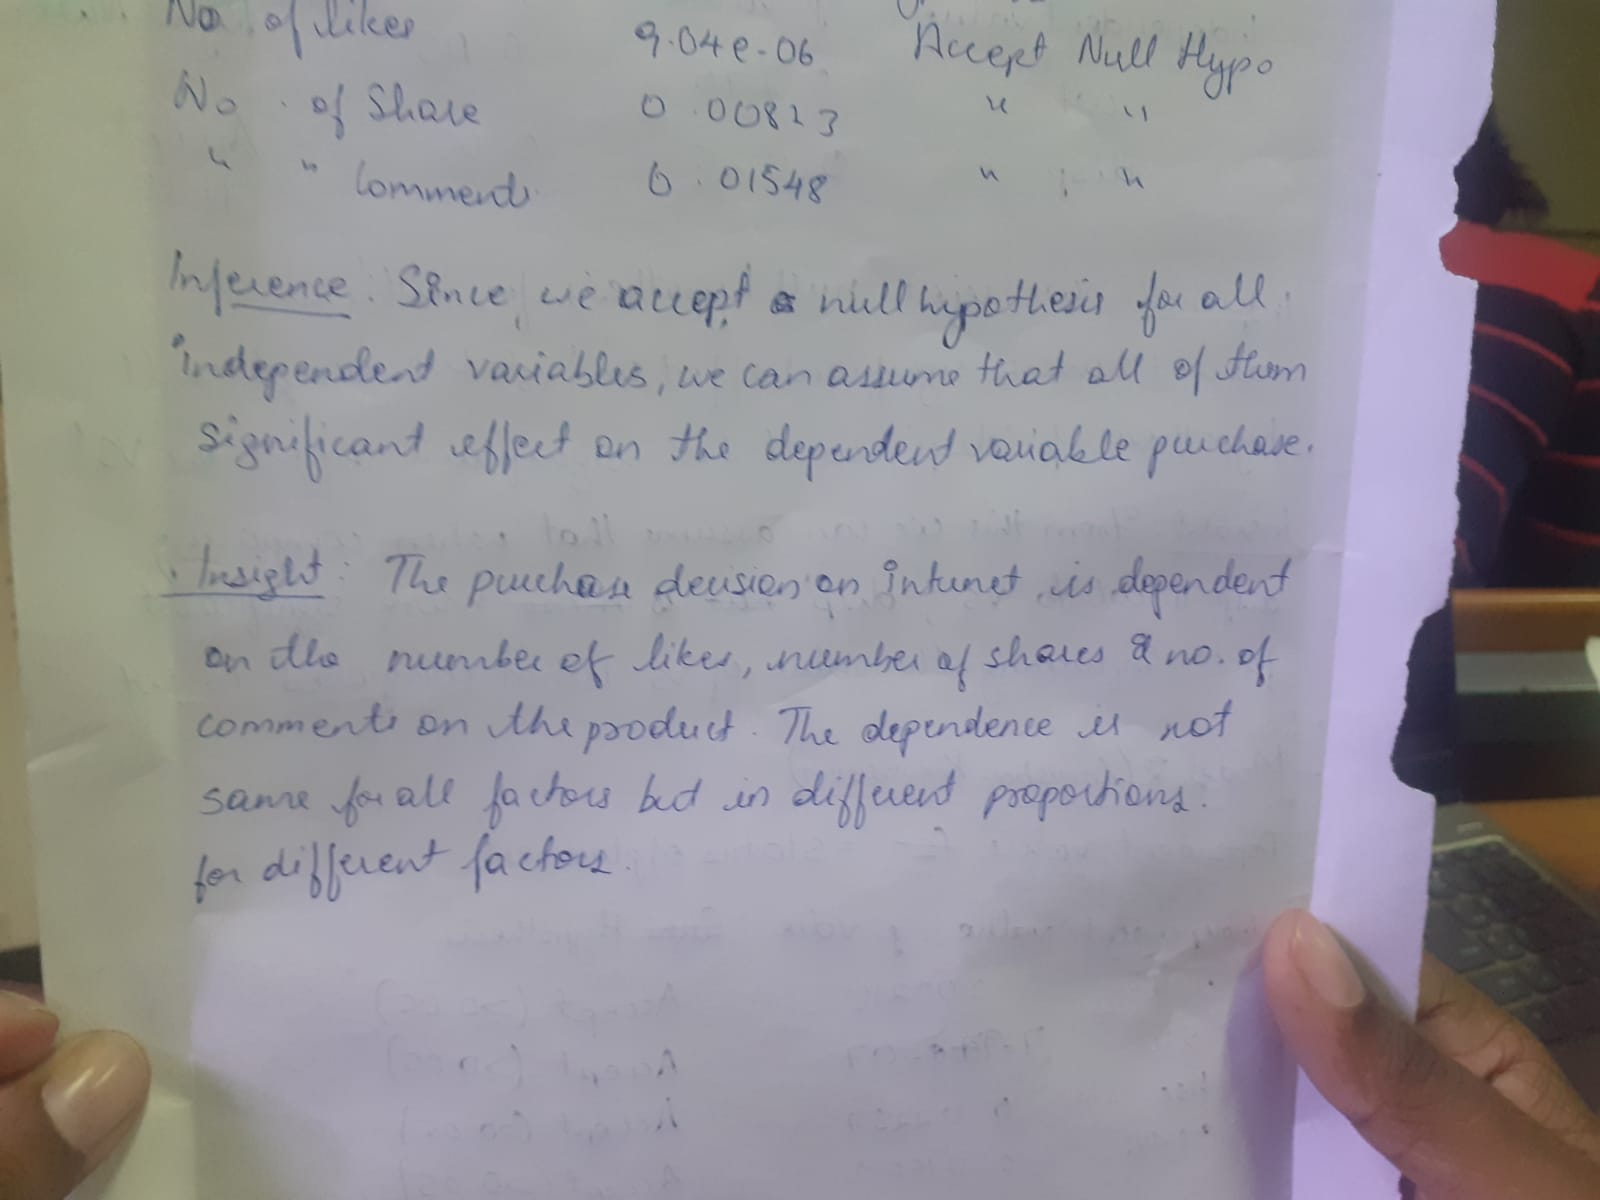 No. of likes 9.04e-06 Accept Null Hypo
No. of Share 0.00823 " "
" " Comments 0.01548 " "
Inference: Since, we accept null hypothesis for all
independent variables, we can assume that all of them
significant effect on the dependent variable purchase.
Insight: The purchase decision on internet is dependent
on the number of likes, number of shares & no. of
comments on the product. The dependence is not
same for all factors but in different proportions.
for different factors.